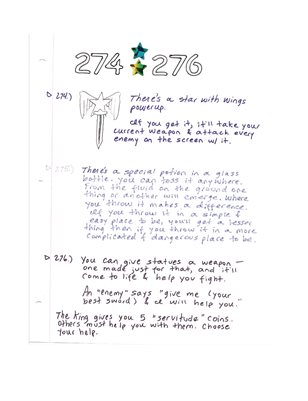 274 276
274.) There's a star with wings
powerup.
If you get it, it'll take your
current weapon & attack every
enemy on the screen w/ it.
275.) There's a special potion in a glass
bottle. You can toss it anywhere.
From the fluid on the ground one
thing or another will emerge. Where
you throw it makes a difference.
If you throw it in a simple &
easy place to be, you'll get a lesser
thing than if you throw it in a more
complicated & dangerous place to be.
276.) You can give statues a weapon —
one made just for that, and it'll
come to life & help you fight.
An "enemy" says "give me (your
best sword) & I will help you."
The King gives you 5 "servitude" coins.
Others must help you with them. Choose
your help.